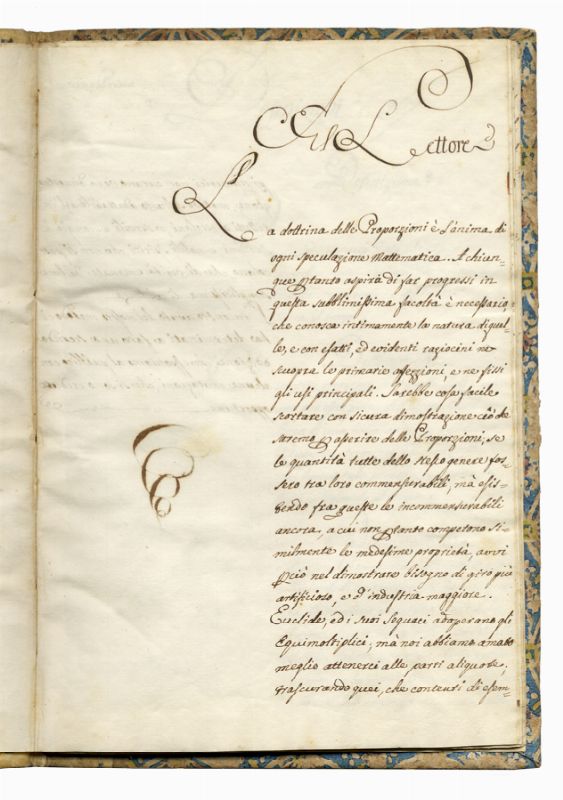 Al Lettore
La dottrina delle Proporzioni è l'anima di
ogni speculazione Mattematica. A chiun-
que ptanto aspira di far progressi in
questa subblimissima facoltà è necessario,
che conosca intimamente la natura di quel-
le, e con esatti, ed evidenti raziocini ne
scuopra le primarie affezzioni, e ne fissi
gli usi principali. Sarebbe cosa facile
scortare con sicura dimostrazione ciò che
saremo p asserire delle Proporzioni, se
le quantità tutte dello stesso genere fos-
sero tra loro commensurabili; mà esis-
tendo fra queste le incommensurabili
ancora, a cui non ptanto competono si-
milmente le medesime proprietà, avvi
pciò nel dimostrare bisogno di giro più
artificioso, e d'industria maggiore.
Euclide, ed i suoi seguaci adoperano gli
Equimoltiplici; mà noi abbiamo amato
meglio attenerci alle parti aliquote,
trascurando quei, che contenti di esem-